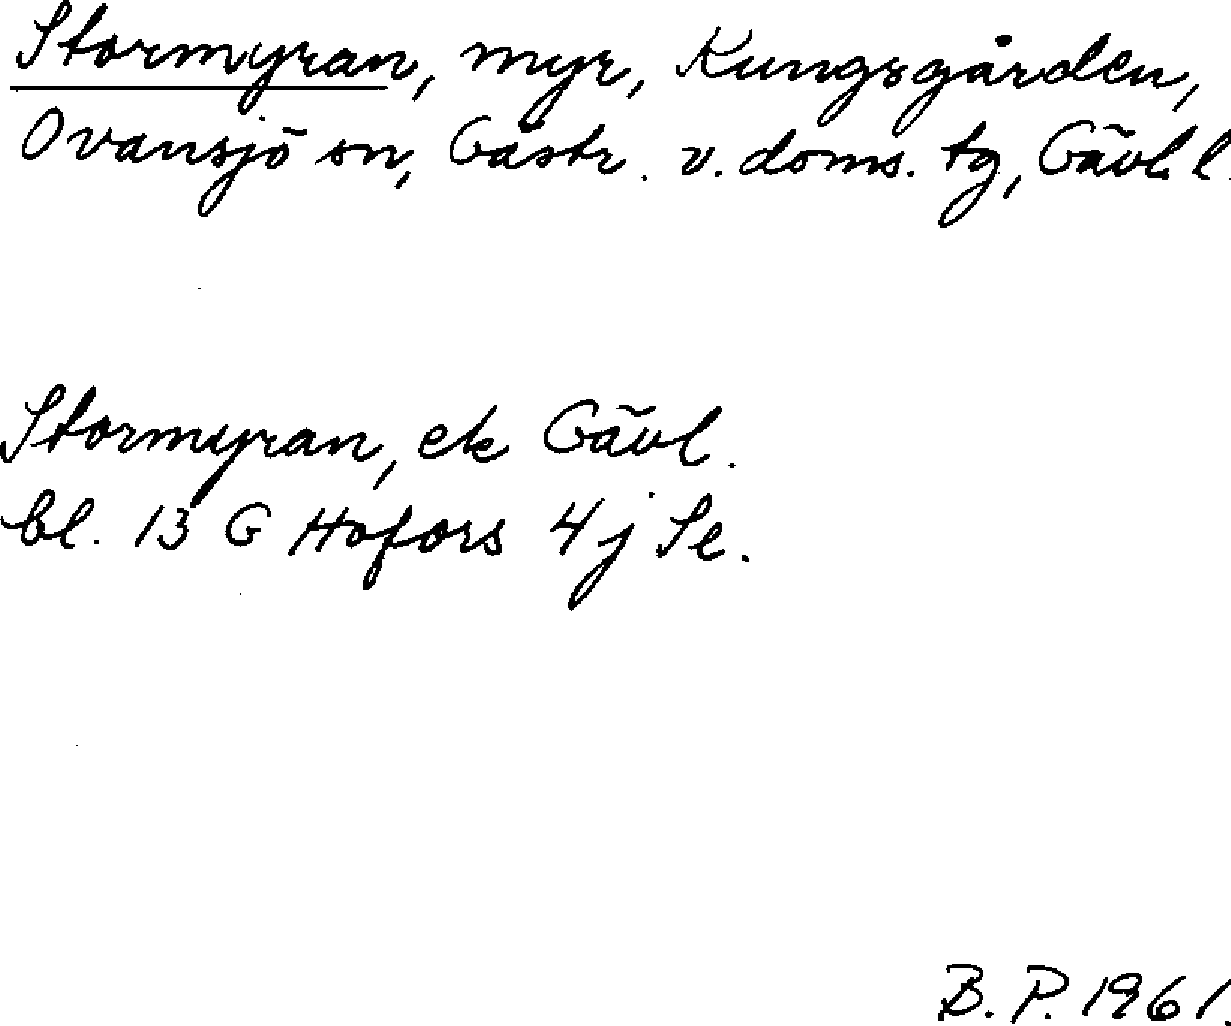 Stormyran, myr, Kungsgården,
Ovansjö sn, Gästr. v. doms. tg, Gävl. l.
Stormyran, ek Gävl.
bl. 13 G Hofors 4 j Se.
B. P. 1961.